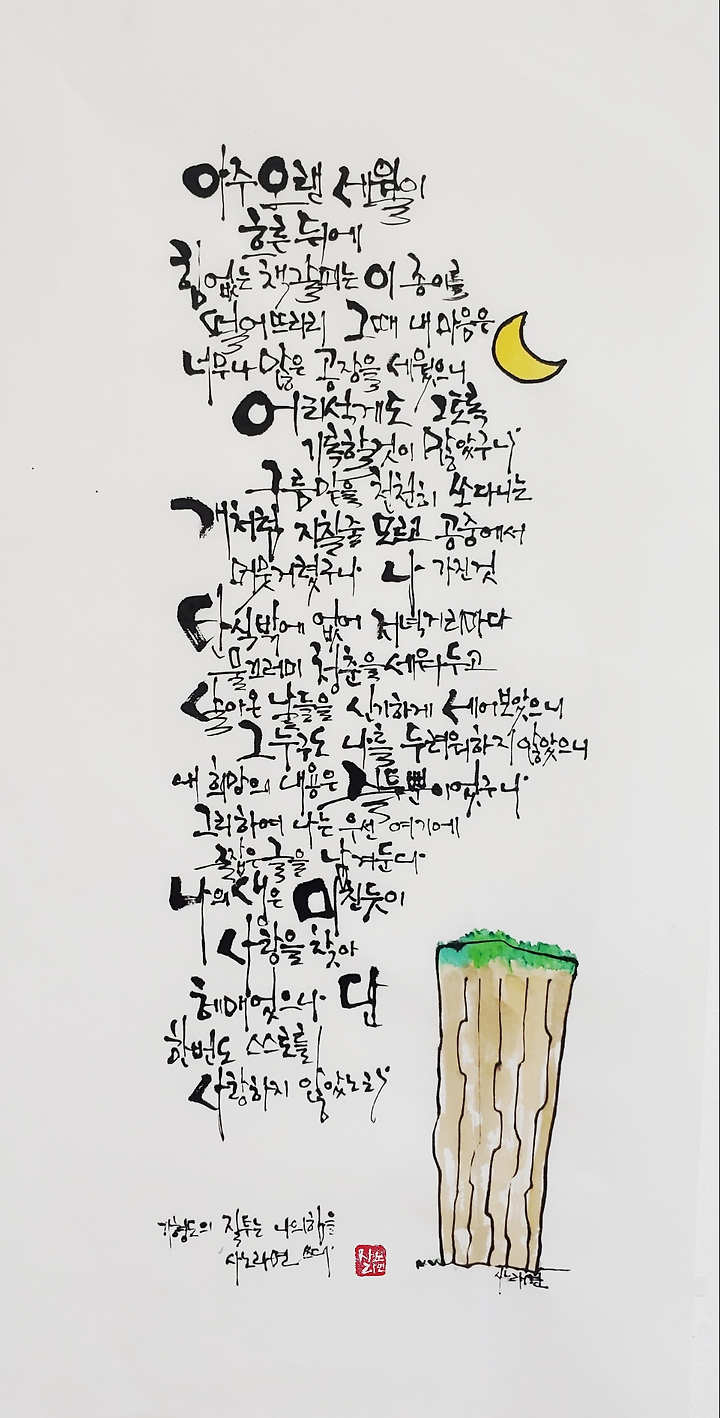 아주 오랜 세월이
흐른 뒤에
힘없는 책갈피는 이 종이를
떨어뜨리리 그때 내 마음은
너무나 많은 공장을 세웠으니
어리석게도 그토록
기록할것이 많았구나
구름밑을 천천히 쏘다니는
개처럼 지칠줄 모르고 공중에서
머뭇거렸구나 나 가진것
탄식밖에 없어 저녁거리마다
물끄러미 청춘을 세워두고
살아온 날들을 신기하게 세어보았으니
그 누구도 나를 두려워하지 않았으니
내 희망의 내용은 질투뿐이었구나
그리하여 나는 우선 여기에
짧은 글을 남겨둔다
나의 생은 미친듯이
사랑을 찾아
헤매었으나 단
한번도 스스로를
사랑하지 않았노라
기형도의 질투는 나의 힘을
사노라면 쓰다
사노라면
사노라면